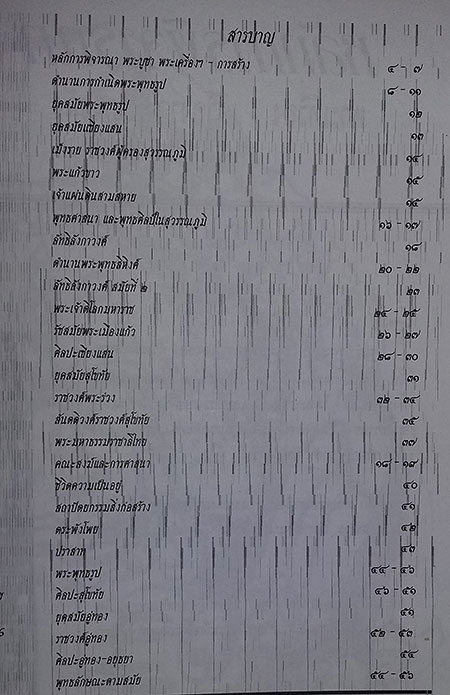 สารบาญ
หลักการพิจารณา พระบูชา พระเครื่องฯ - การสร้าง ๔ - ๗
ตำนานการกำเนิดพระพุทธรูป ๘ - ๑๑
ยุคสมัยพระพุทธรูป ๑๒
ยุคสมัยเชียงแสน ๑๓
เม็งราย ราชวงค์ผู้ครองสุวรรณภูมิ ๑๔
พระแก้วขาว ๑๕
เจ้าแผ่นดินสามสหาย ๑๕
พุทธศาสนา และพุทธศิลป์ในสุวรรณภูมิ ๑๖ - ๑๗
ลัทธิลังกาวงค์ ๑๘
ตำนานพระพุทธสิหิงค์ ๒๐ - ๒๒
ลัทธิลังกาวงค์ สมัยที่ ๒ ๒๓
พระเจ้าติโลกมหาราช ๒๔ - ๒๕
รัชสมัยพระเมืองแก้ว ๒๖ - ๒๗
ศิลปะเชียงแสน ๒๘ - ๓๐
ยุคสมัยสุโขทัย ๓๑
ราชวงค์พระร่วง ๓๒ - ๓๔
สันตติวงค์ราชวงค์สุโขทัย ๓๕
พระมหาธรรมราชาลิไทย ๓๗
คณะสงฆ์และการศาสนา ๑๘ - ๑๙
ชีวิตความเป็นอยู่ ๔๐
สถาปัตยกรรมสิ่งก่อสร้าง ๔๑
ตระพังโพย ๔๒
ปราสาท ๔๓
พระพุทธรูป ๔๔ - ๔๖
ศิลปะสุโขทัย ๔๖ - ๕๑
ยุคสมัยอู่ทอง ๕๑
ราชวงค์อู่ทอง ๕๒ - ๕๓
ศิลปะอู่ทอง-อยุธยา ๕๔
พุทธลักษณะตามสมัย ๕๔ - ๕๖